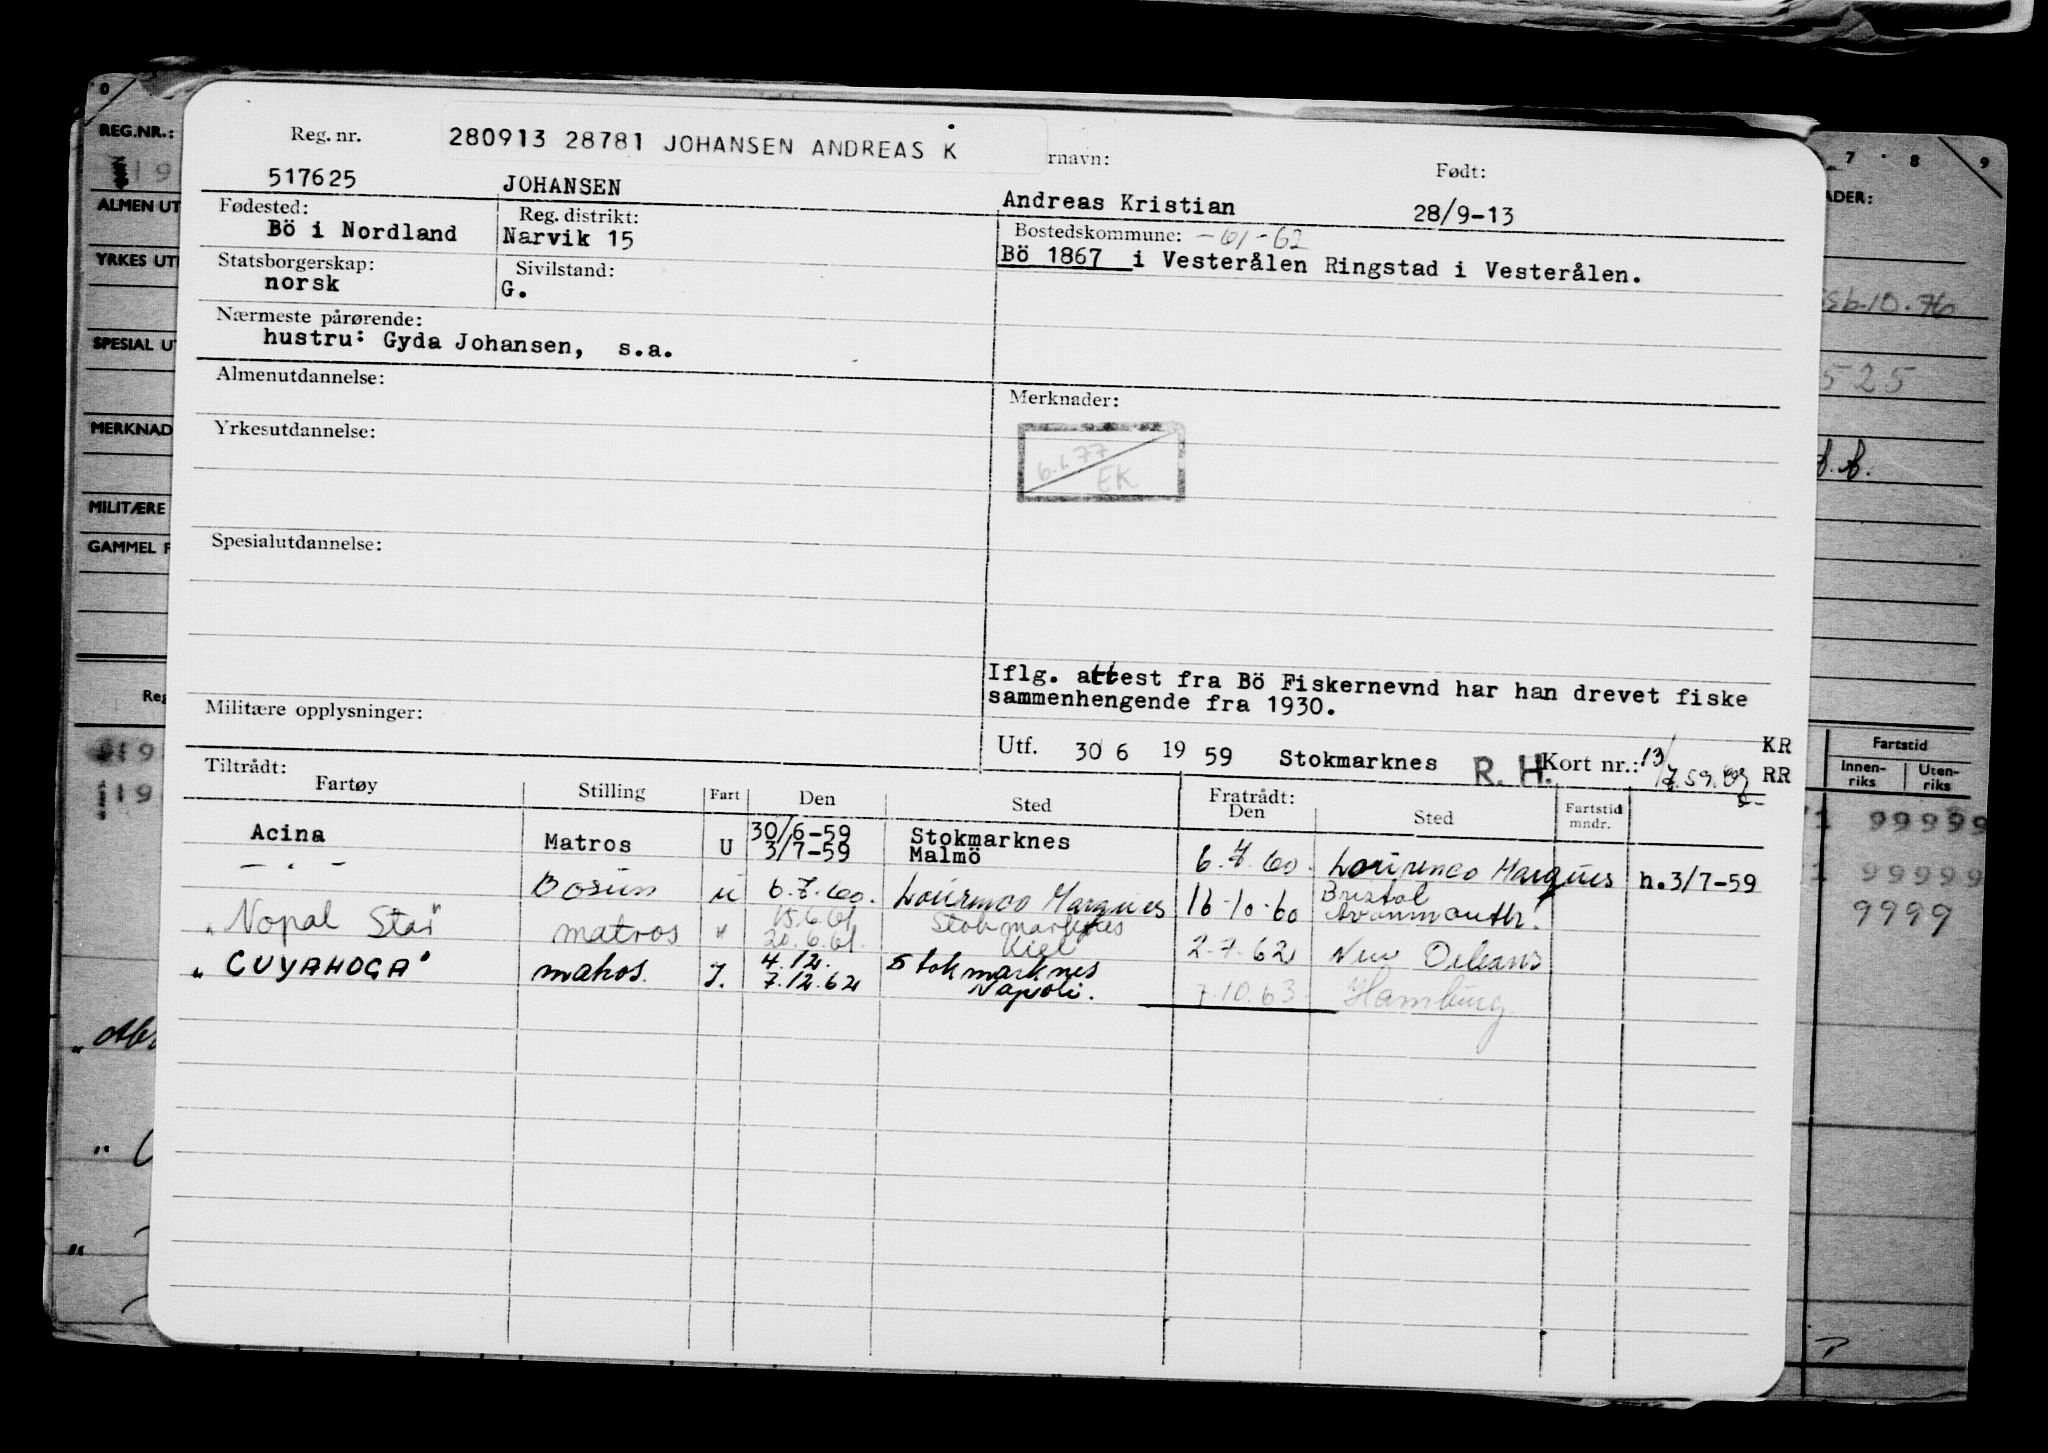 280913 28781 JOHANSEN ANDREAS K
Reg. nr. rnavn: Født:
517625 JOHANSEN Andreas Kristian 28/9-13
Fødested: Reg. distrikt: Bostedskommune: -61-62
Bö i Nordland Narvik 15 Bö 1867 i Vesterålen Ringstad i Vesterålen.
Statsborgerskap: Sivilstand:
norsk G.
Nærmeste pårørende:
hustru: Gyda Johansen, s.a.
Almenutdannelse: Merknader:
6.1.77
EK
Yrkesutdannelse:
Spesialutdannelse:
Iflg. attest fra Bö Fiskernevnd har han drevet fiske
sammenhengende fra 1930.
Militære opplysninger:
Utf. 30/6 19 59 Stokmarknes R. H. Kort nr.: 13/7.59. KR
RR
Tiltrådt: Fratrådt:
Fartøy Stilling Fart Den Sted Den Sted Fartstid mndr.
Acina Matros U 30/6-59 Stokmarknes
3/7-59 Malmö 6.7.60. Lourenco Marques h.3/7-59
— . — Bosun u 6.7.60. Lourenco Marques 16-10-60 Bristol
Avonmouth.
"Nopal Star" matros " 15.6.61. Stokmarknes
20.6.61. Kiel 2.7.62 New Orleans
"CUYAHOGA" matros. 4.12. Stokmarknes
7.12.62 Napoli. 7.10.63. Hamburg.
0
REG.NR.:
19
ALMEN UT
YRKES UT
SPESIAL UT
MERKNAD
MILITÆRE
GAMMEL F
Reg
19
19
7 8 9
ADER:
10.76
525
Fartstid
Innen-riks Uten-riks
1 99999
1 99999
9999